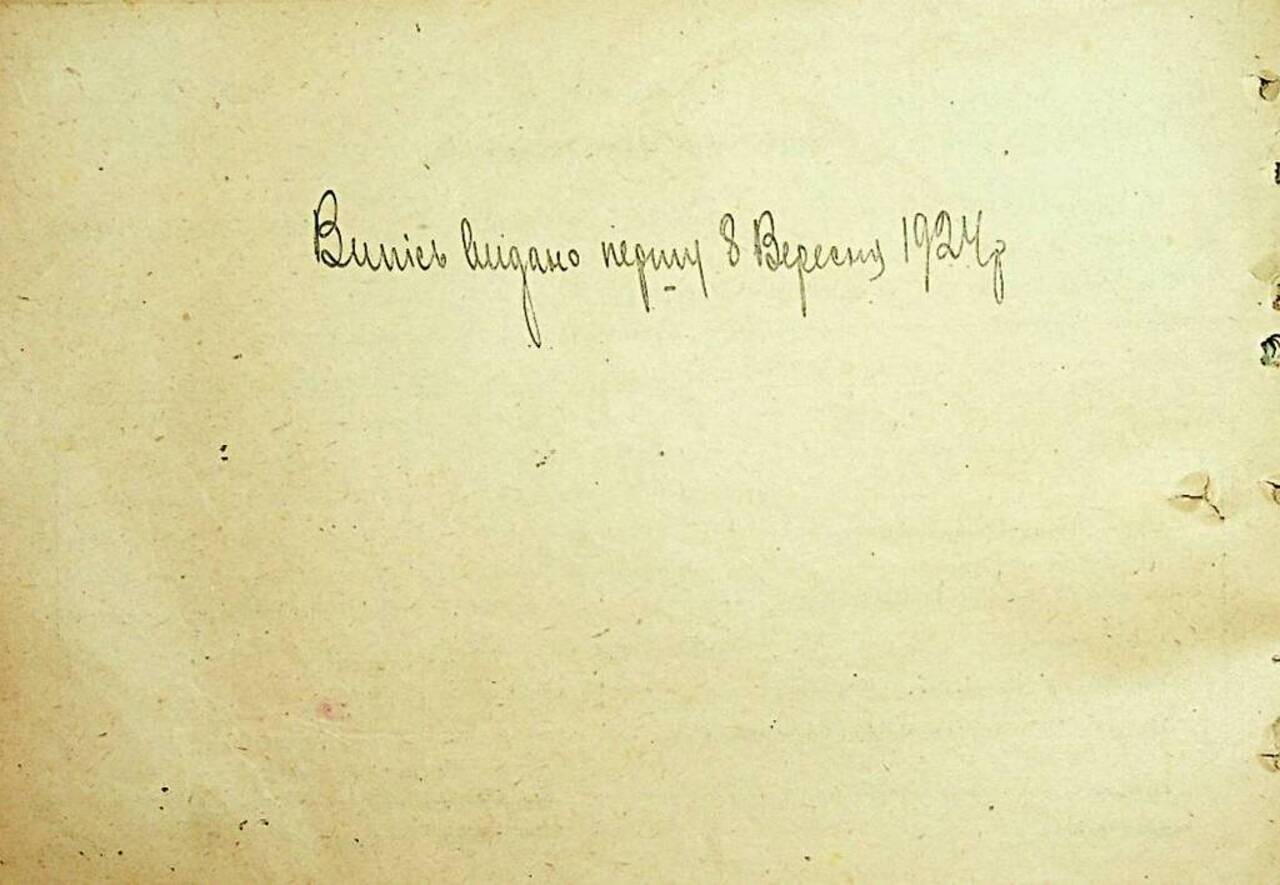 Випісь видано першу 8 Вересня 1924р